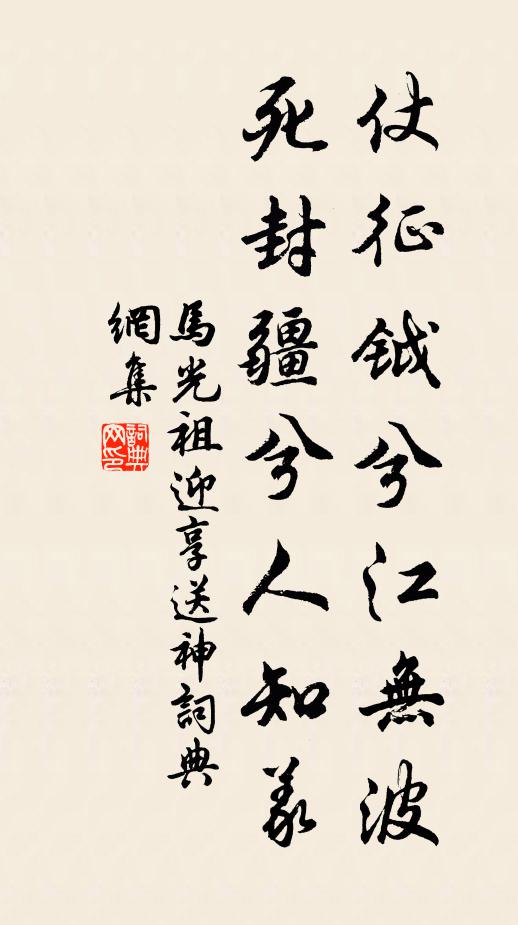 仗征鉞兮江無波
死封疆兮人知義
馬光祖迎享送神詞典
網集
詞典
网印